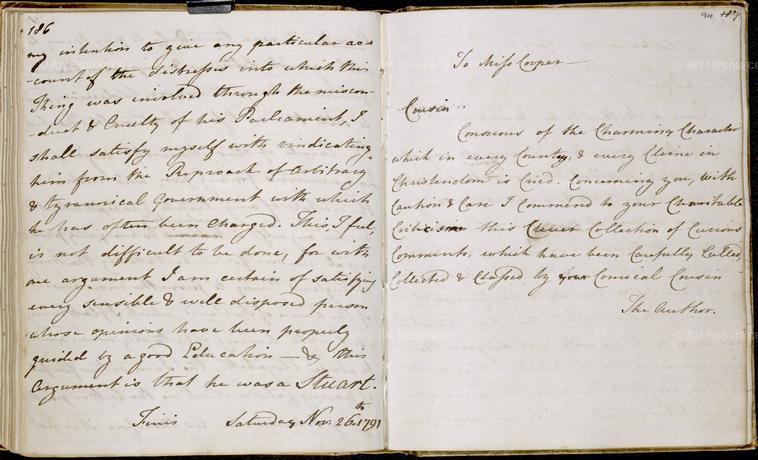 186
my intention to give any particular ac=
-count of the distresses into which this
King was involved through the miscon-
-duct & Cruelty of his Parliament, I
shall satisfy myself with vindicating
him from the Reproach of Arbitrary
& tyrannical Government with which
he has often been Charged. This, I feel,
is not difficult to be done, for with
one argument I am certain of satisfying
every sensible & well disposed person
whose opinions have been properly
guided by a good Education — & this
Argument is that he was a Stuart.
Finis Saturday Nov. 26th 1791
94 187
To Miss Cooper —
Cousin
Conscious of the Charming Character
which in every Country, & every Clime in
Christendom is Cried, Concerning you, with
Caution & Care I Commend to your Charitable
Criticism this Clever Collection of Curious
Comments, which have been Carefully Culled,
Collected & Classed by your Comical Cousin
The Author.
Art Resource